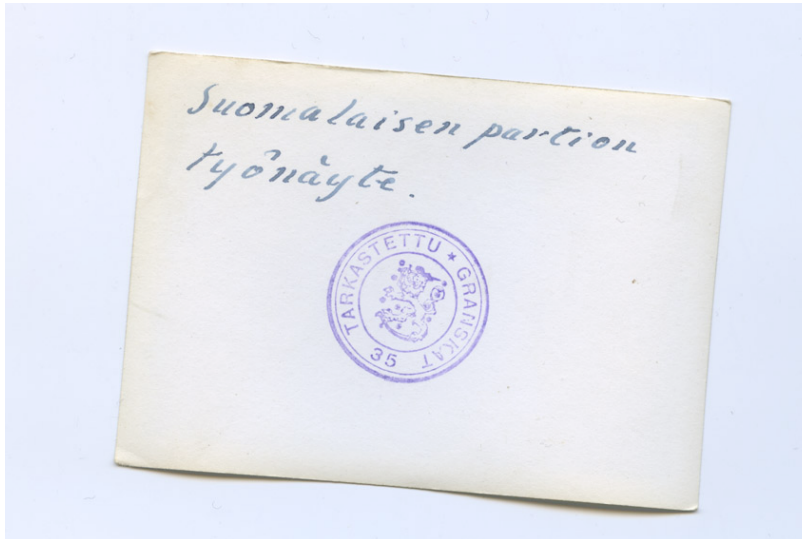 Suomalaisen partion
työnäyte.
TARKASTETTU * GRANSKAT
35